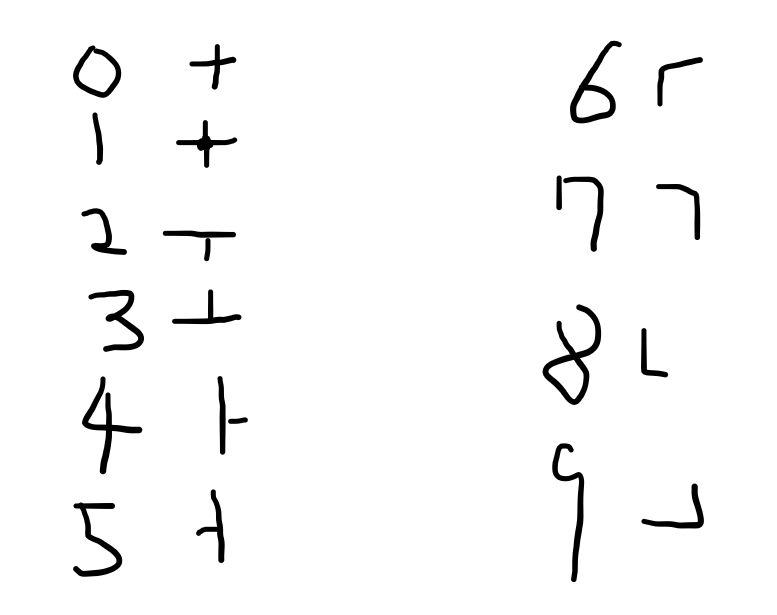 0 +
1 +
2 ┬
3 ┴
4 ├
5 ┤
6 ┌
7 ┐
8 └
9 ┘